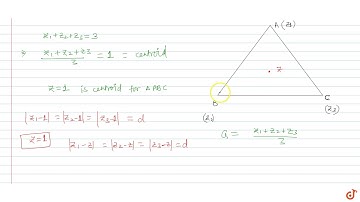 z1 + z2 + z3 = 3
⇒ (z1 + z2 + z3)/3 = 1 = centroid
z = 1 is centroid for △ABC
|z1-1| = |z2-1| = |z3-1| = d
z = 1
|z1-z| = |z2-z| = |z3-z| = d
A (z1)
z
B
C
(z2)
(z3)
G = (z1 + z2 + z3)/3